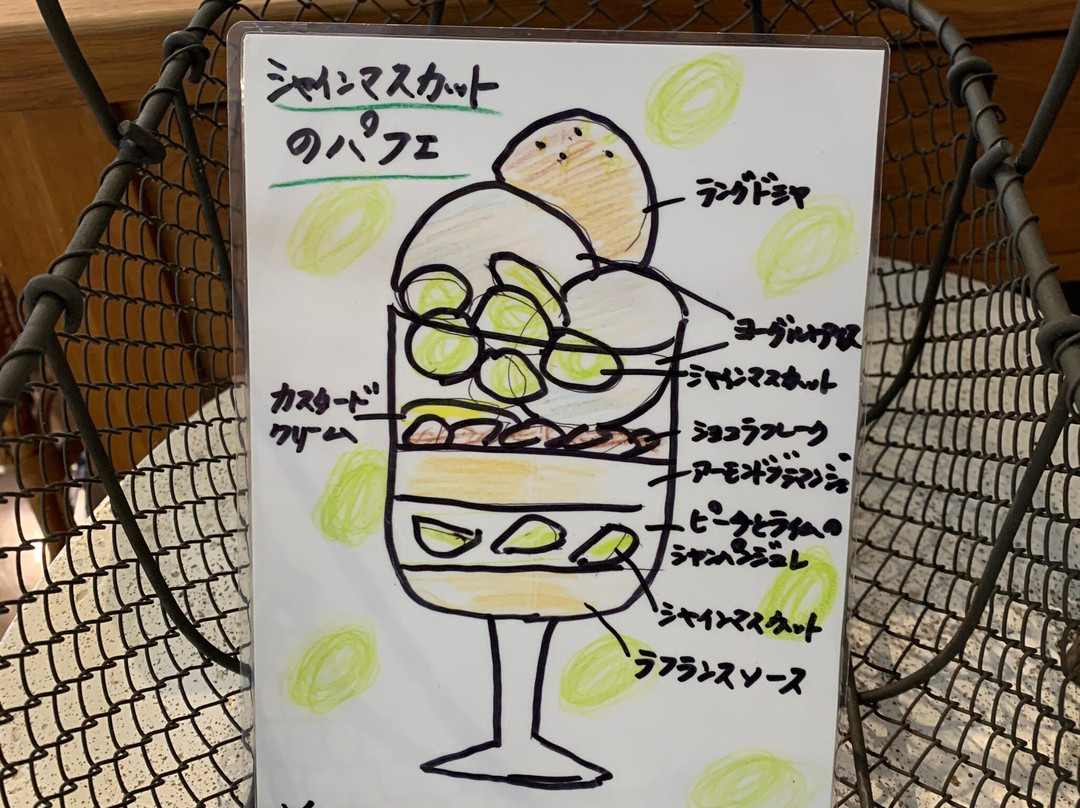 シャインマスカット
のパフェ
ラングドシャ
ヨーグルトアイス
シャインマスカット
カスタード
クリーム
ショコラフレーク
アーモンドブラマンジェ
ピーチとライムの
シャンパンジュレ
シャインマスカット
ラフランスソース